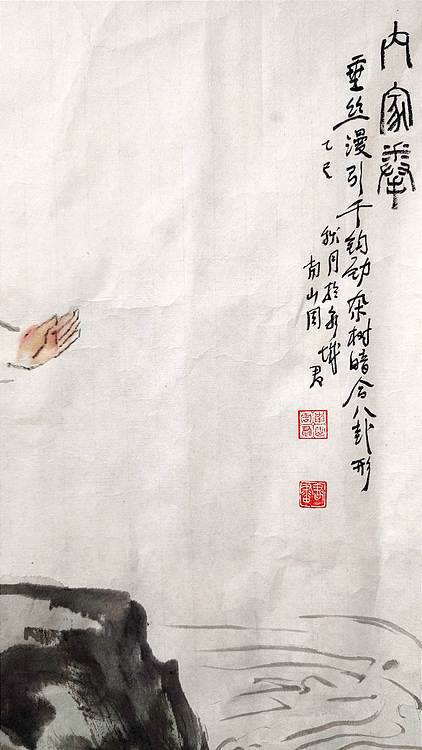 内家拳
垂丝漫引千钧劲树暗合八卦形
乙巳
秋月於泉城
南山周君